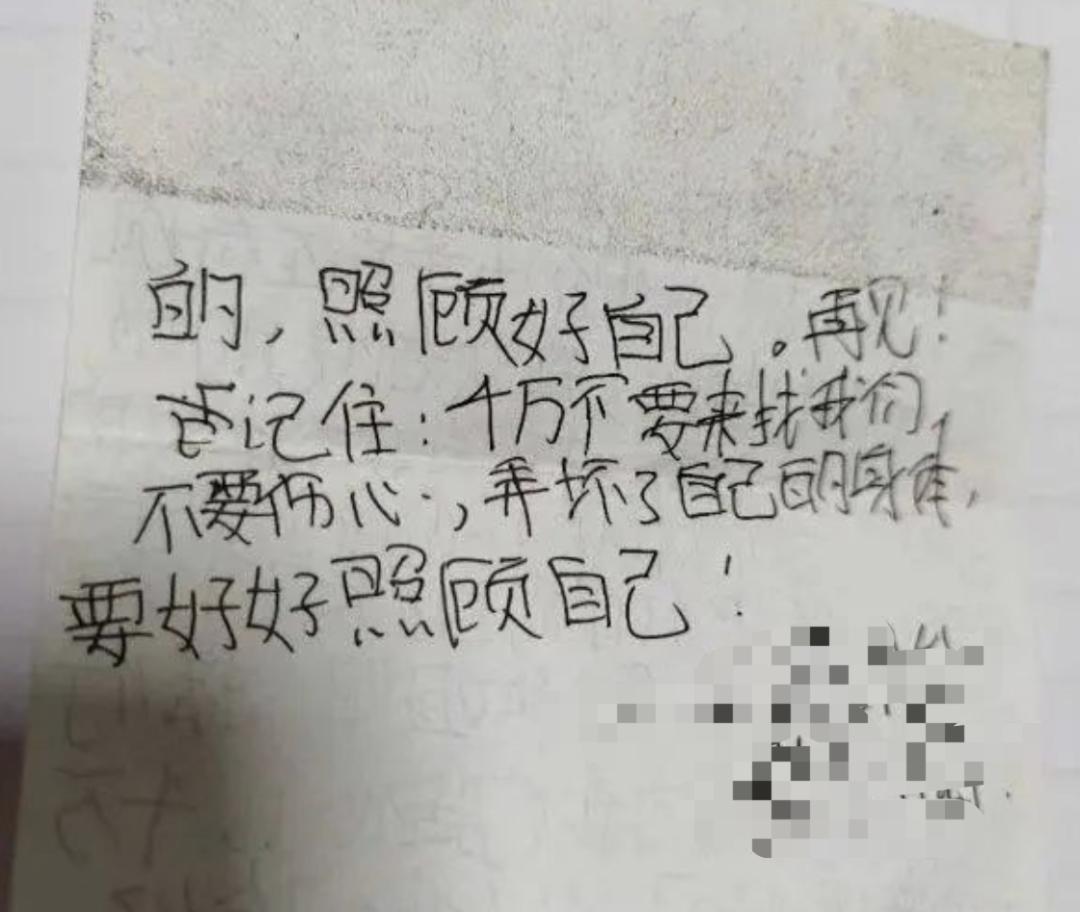 的，照顾好自己。再见！
记住：千万不要来找我们，
不要伤心，弄坏了自己的身体，
要好好照顾自己！